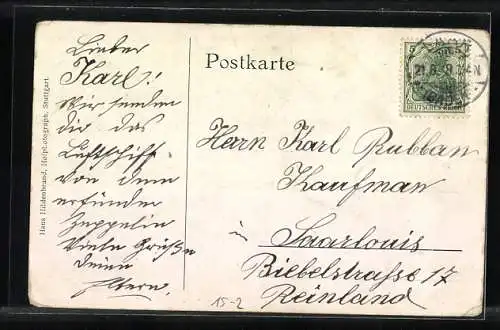 Lieber
Karl!
Wir senden
dir das
Luftschiff
von dem
erfinder
Zeppelin
Viele Grüße
deine
Eltern.
Hans Hildenbrand, Hofphotograph, Stuttgart.
Postkarte
5
DEUTSCHES REICH
21.6.
Herrn Karl Rubban
Kaufman
in Saarlouis
Biebelstrasse 17
Reinland
15-2